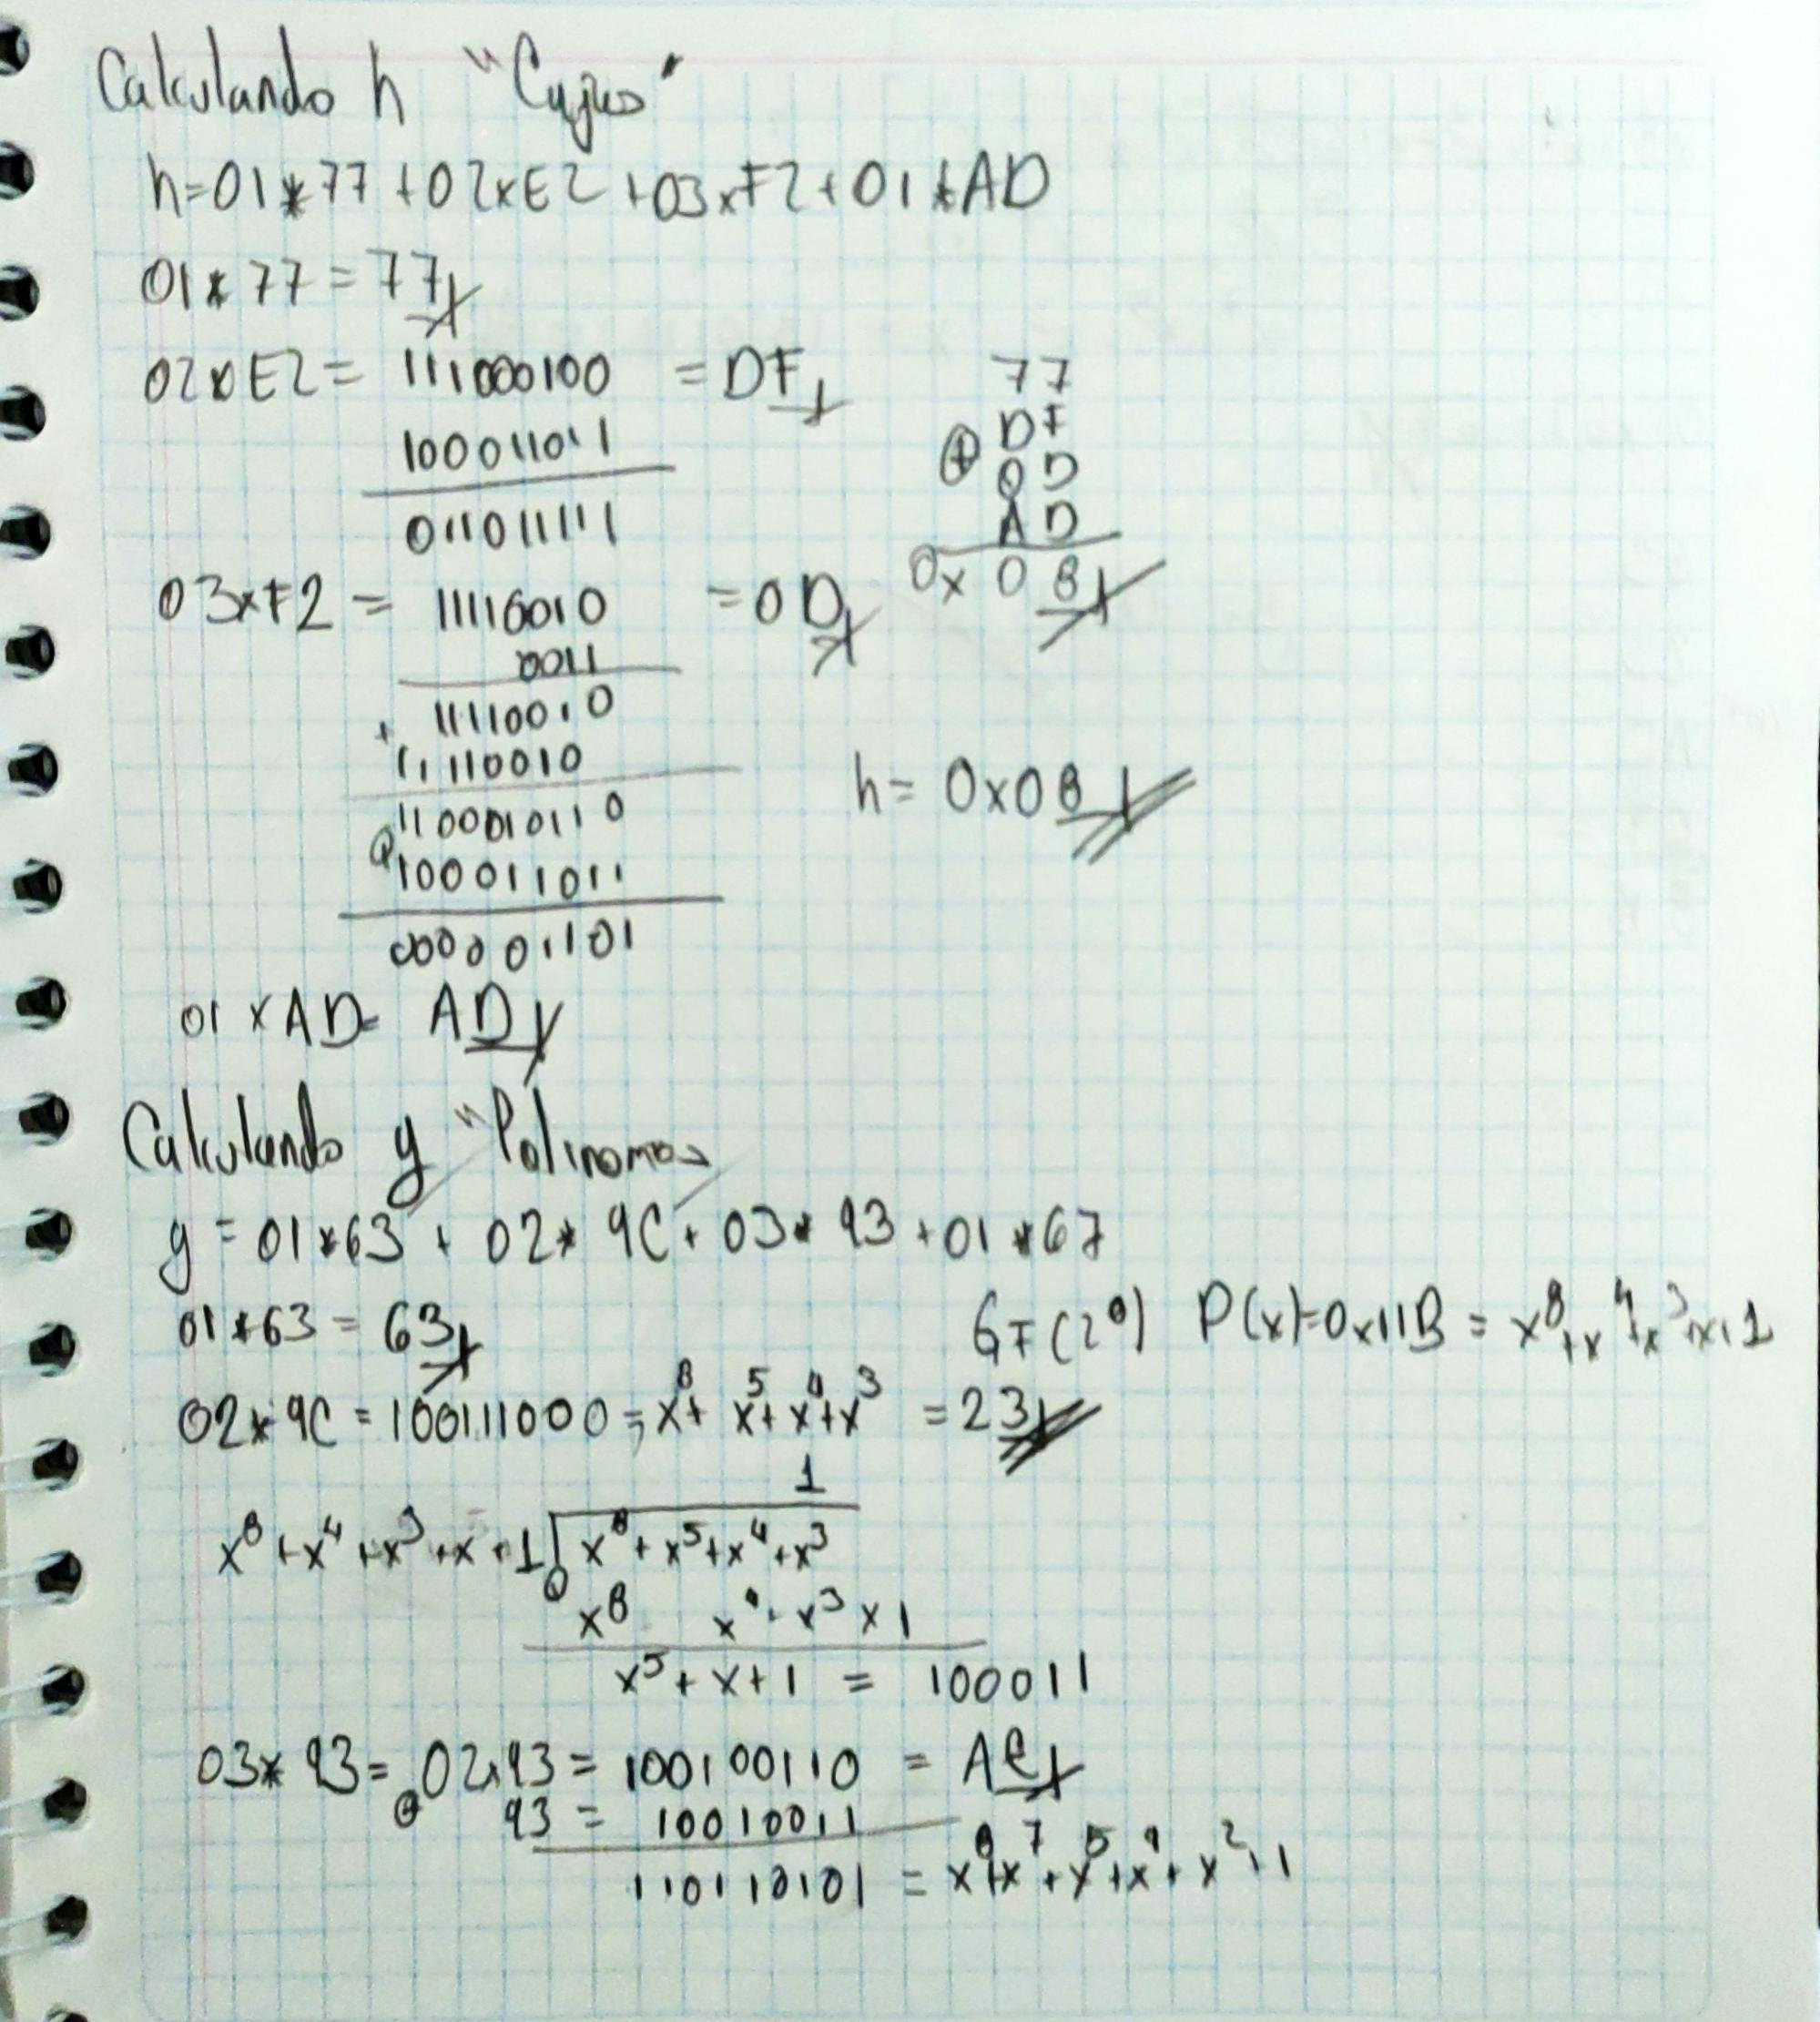 Calculando h "Cyjus"
h=01*77+02xE2+03xF2+01*AD
01*77=77
02xE2= 111000100 =DF
100011011
011011111
77
⊕ DF
0D
AD
0x08
03xF2= 11110010 =0D
0011
11110010
+ 11110010
1100010110
⊕ 100011011
000001101
h=0x08
01xAD= AD
Calculando y "Polinomos
y=01*63+02*9C+03*93+01*67
01*63=63
GF(2⁸) P(x)=0x11B = x⁸+x⁴+x³+x+1
02*9C=100111000=x⁸+x⁵+x⁴+x³ =23
1
x⁸+x⁴+x³+x+1 x⁸+x⁵+x⁴+x³
⊕ x⁸ x⁴+x³x1
x⁵+x+1 = 100011
03*93= 02x93= 100100110 = AE
⊕ 93 = 10010011
110110101 = x⁸+x⁷+x⁵+x⁴+x²+1